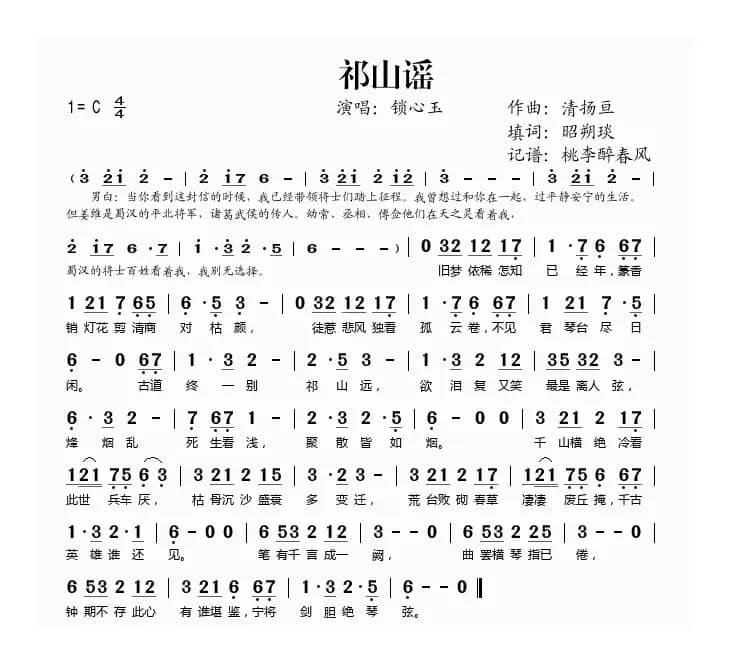 祁山谣
1= C 4/4 演唱：锁心玉 作曲：清扬亘
填词：昭朔琰
记谱：桃李醉春风
( 3 21 2 - | 2 17 6 - | 3 21 2 12 | 3 - - - | 3 21 2 - |
男白：当你看到这封信的时候，我已经带领将士们踏上征程。我曾想过和你在一起，过平静安宁的生活。
但姜维是蜀汉的平北将军，诸葛武侯的传人。幼常、丞相、傅佥他们在天之灵看着我，
2 17 6 · 7 | 1 · 3 2 · 5 | 6 - - - ) | 0 32 12 17 | 1 · 7 6 67 |
蜀汉的将士百姓看着我，我别无选择。 旧梦 依稀 怎知 已 经 年，篆香
1 21 7 65 | 6 · 5 3 - | 0 32 12 17 | 1 · 7 6 67 | 1 21 7 · 5 |
销 灯花 剪 清商 对 枯 颜， 徒惹 悲风 独看 孤 云 卷，不见 君 琴台 尽 日
6 - 0 67 | 1 · 3 2 - | 2 · 5 3 - | 1 3 2 12 | 35 32 3 - |
闲。 古道 终 一 别 祁 山 远， 欲 泪 复 又笑 最是 离人 弦，
6 · 3 2 - | 7 67 1 - | 2 · 3 2 · 5 | 6 - 0 0 | 3 21 2 17 |
烽 烟 乱 死 生看 浅， 聚 散 皆 如 烟。 千 山横 绝 冷看
121 75 6 3 | 3 21 2 15 | 3 · 2 3 - | 3 21 2 17 | 121 75 6 67 |
此世 兵车 厌， 枯 骨沉 沙 盛衰 多 变 迁， 荒 台败 砌 春草 凄凄 废丘 掩，千古
1 · 3 2 · 1 | 6 - 0 0 | 6 53 2 12 | 3 - - 0 | 6 53 2 25 | 3 - - 0 |
英 雄 谁 还 见。 笔 有千 言 成一 阙， 曲 罢横 琴 指已 倦，
6 53 2 12 | 3 21 6 67 | 1 · 3 2 · 5 | 6 - - 0 ‖
钟 期不 存 此心 有 谁堪 鉴，宁将 剑 胆 绝 琴 弦。